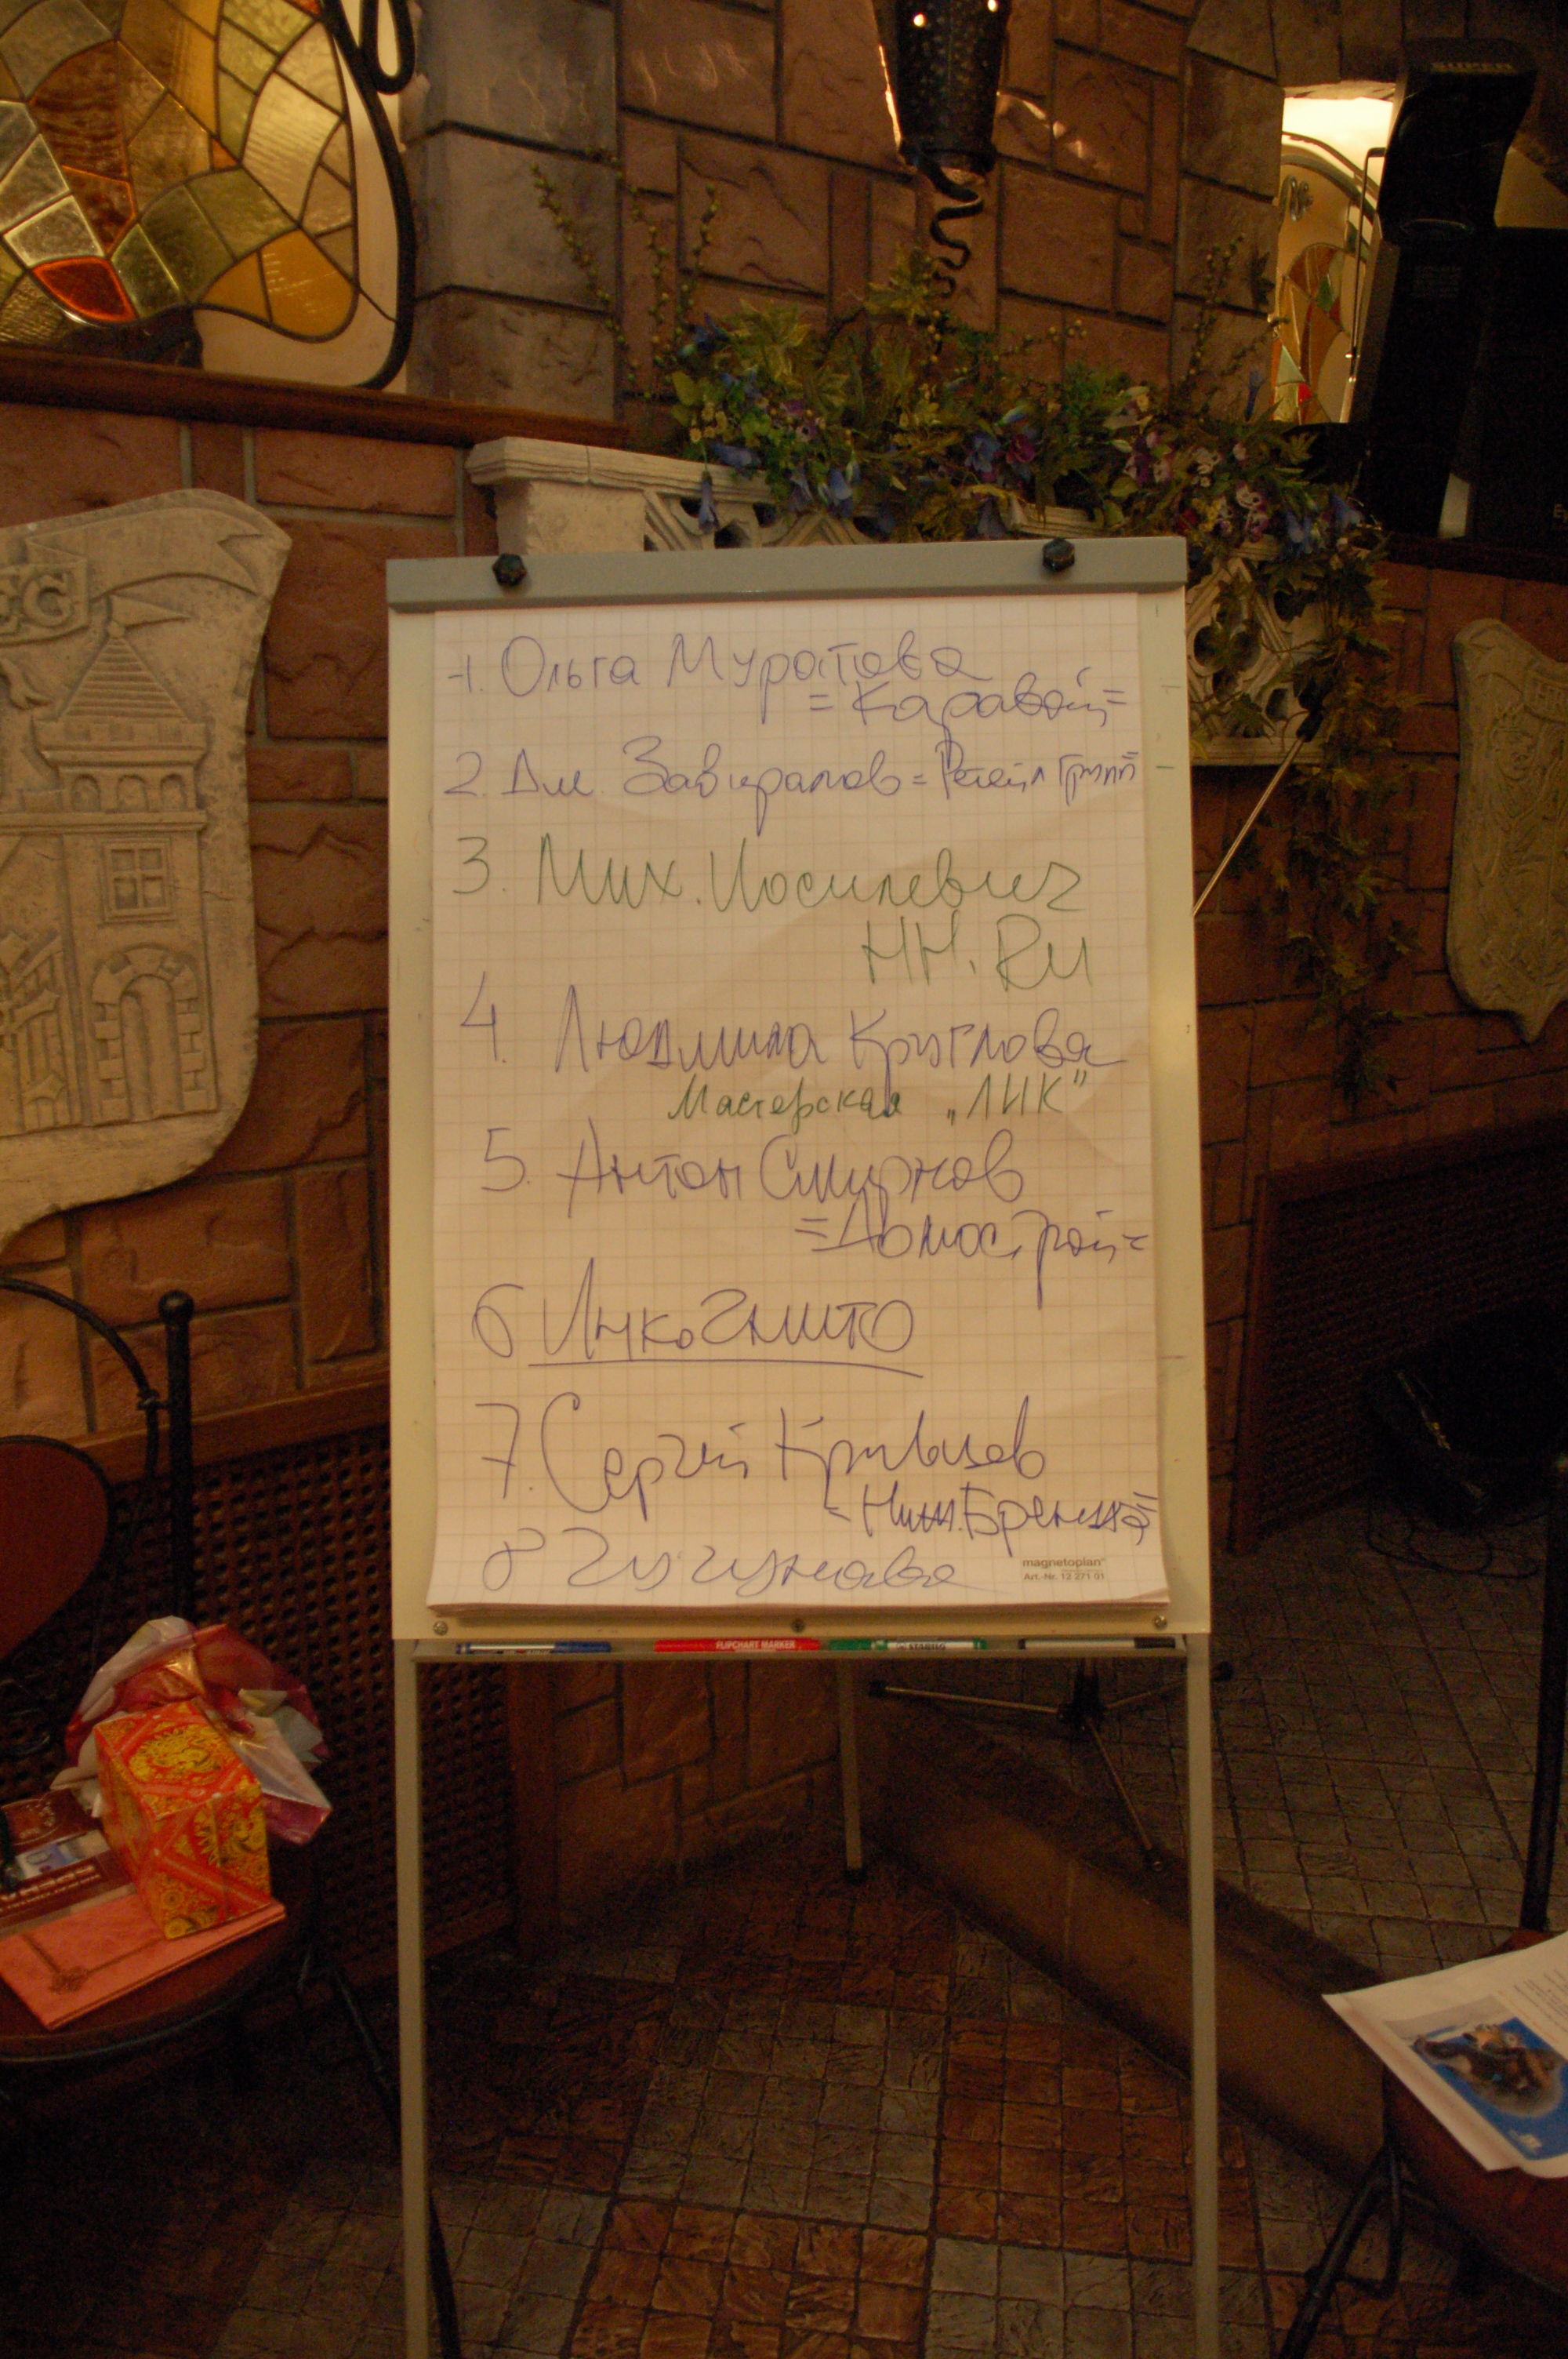 1. Ольга Муратова
= Каравай =
2. Дм. Завиралов = Ретейл Групп =
3. Мих. Иосилевич
НН.Ru
4. Людмила Круглова
Мастерская „ЛИК”
5. Антон Смирнов
= Домострой =
6 Инкогнито
7. Сергей Кривцов
8 Чугунова
magnetoplan
Art.-Nr. 12 271 01
FLIPCHART MARKER
SUPER